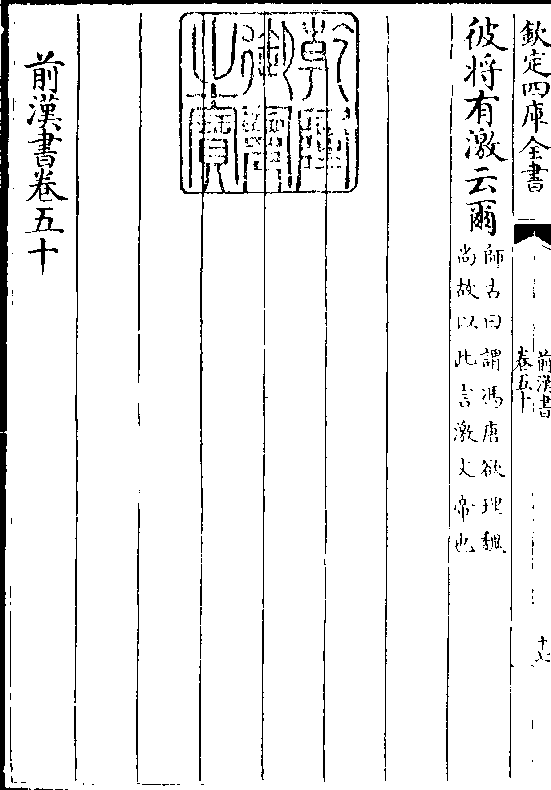 欽定四庫全書
前漢書
卷五十
彼将有激云爾
師古曰謂馮唐欲理魏
尚故以此言激文帝也
乾隆
御覽
之寶
前漢書卷五十